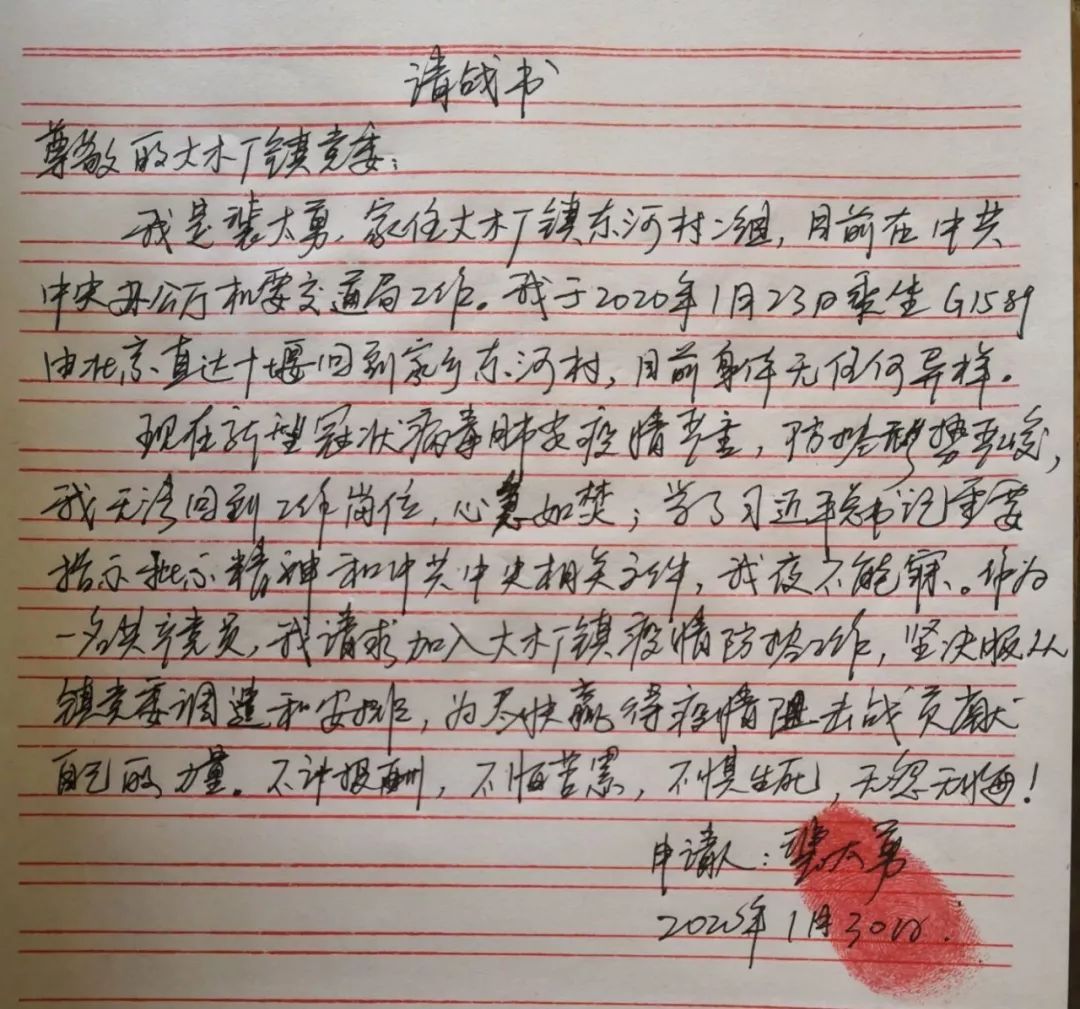 请战书
尊敬的大木厂镇党委：
我是裴大勇，家住大木厂镇东河村二组，目前在中共
中央办公厅机要交通局工作。我于2020年1月23日乘坐G1589
由北京直达十堰回到家乡东河村，目前身体无任何异样。
现在新型冠状病毒肺炎疫情严重，防控形势严峻，
我无法回到工作岗位，心急如焚；学了习近平总书记重要
指示批示精神和中共中央相关文件，我夜不能寐。作为
一名共产党员，我请求加入大木厂镇疫情防控工作，坚决服从
镇党委调遣和安排，为尽快赢得疫情阻击战贡献
自己的力量。不计报酬，不怕苦累，不惧生死，无怨无悔！
申请人：裴大勇
2020年1月30日.